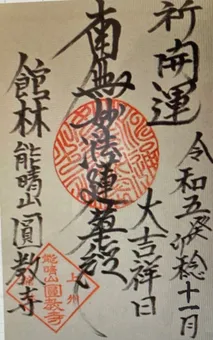 祈開運
令和五癸卯稔十一月
大吉祥日
南無妙法蓮華経
館林能晴山圓教寺
上州
能晴山
圓教寺